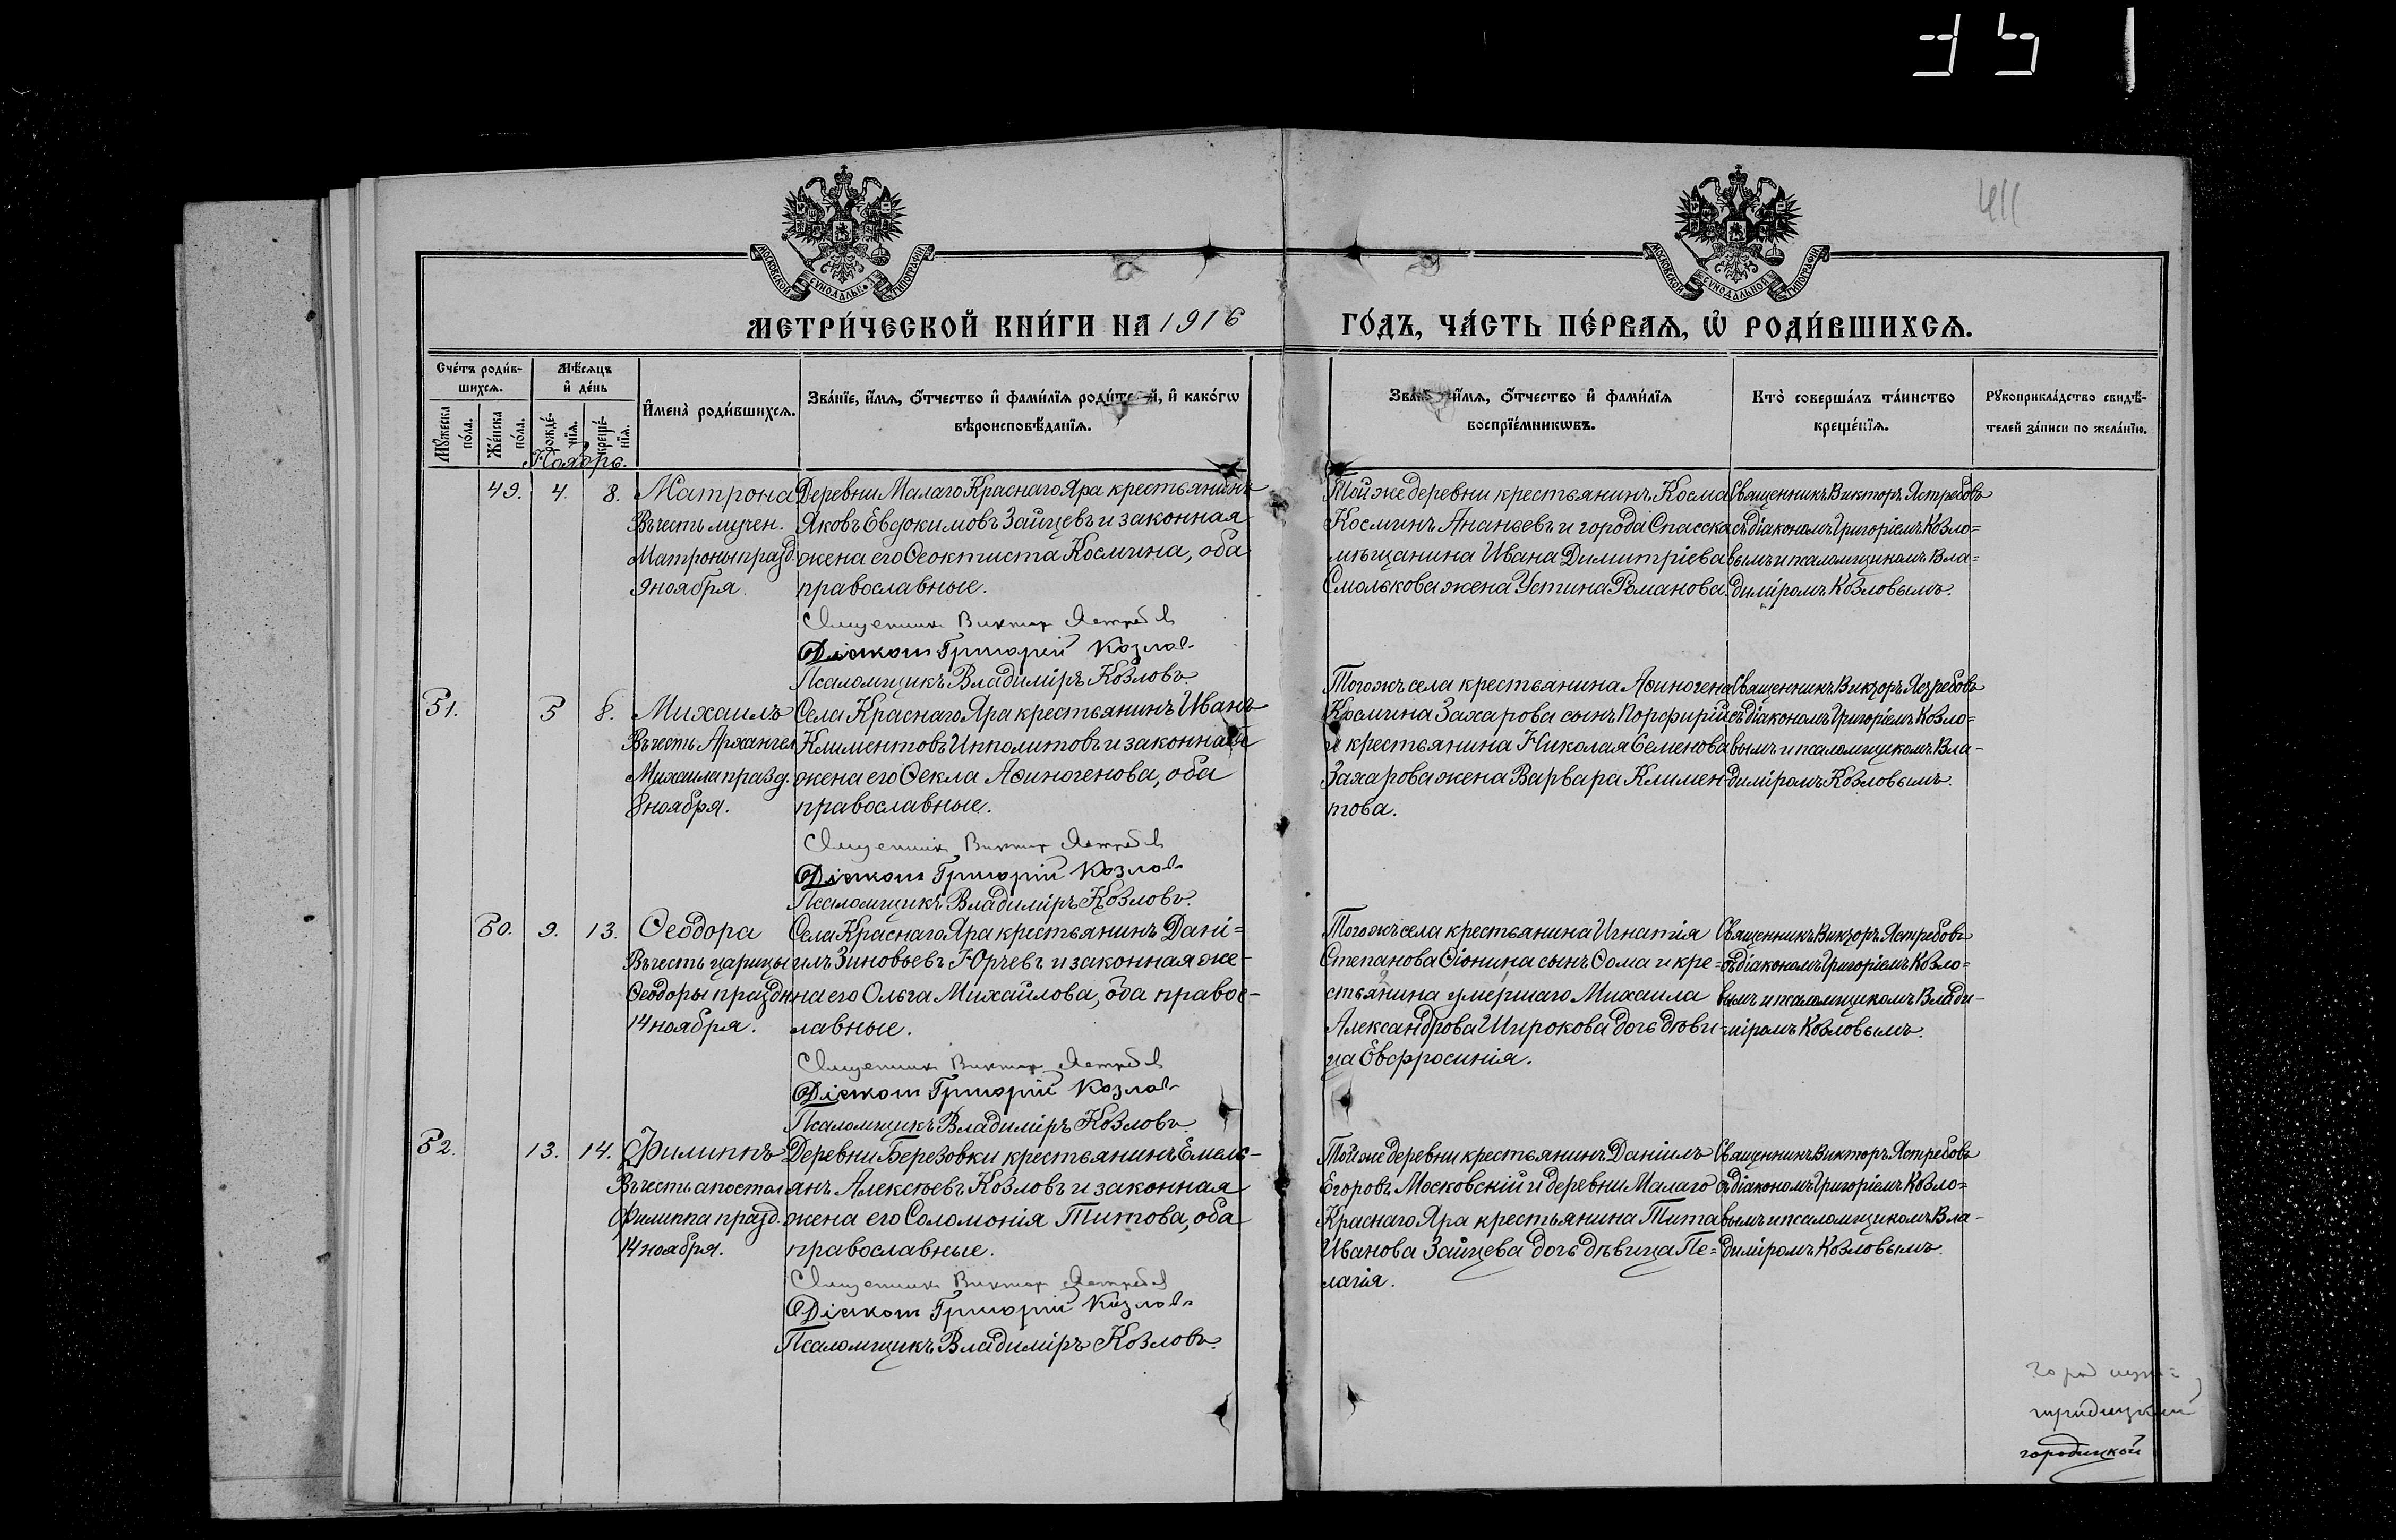 411
МОСКОВСКОЙ СУНОДАЛЬНОЙ ТИПОГРАФІИ
МОСКОВСКОЙ СУНОДАЛЬНОЙ ТИПОГРАФІИ
МЕТРИ́ЧЕСКОЙ КНИ́ГИ НА 1916
ГО́ДЪ, ЧА́СТЬ ПЕ́РВАѦ, Ѡ҆ РОДИ́ВШИХСѦ.
Сче́тъ роди́в-
шихсѧ.
Мꙋ́жеска по́ла.
Же́нска по́ла.
Мѣ́сѧцъ
и҆ де́нь
рожде́-
нїѧ.
креще́-
нїѧ.
И҆мена̀ роди́вшихсѧ.
Зва́нїе, и҆́мѧ, ѻ҆́тчество и҆ фами́лїѧ роди́телей, и҆ како́гѡ
вѣроисповѣ́данїѧ.
Зва́нїе, и҆́мѧ, ѻ҆́тчество и҆ фами́лїѧ
воспрїе́мникѡвъ.
Кто̀ соверша́лъ та́инство
креще́нїѧ.
Рꙋкоприкла́дство свидѣ́-
телей за́писи по жела́нїю.
Ноябрь.
49. 4. 8. Матрона
Въ честь мучен.
Матроны празд.
9 ноября
Деревни Малаго Краснаго Яра крестьянинъ
Яковъ Евдокимовъ Зайцевъ и законная
жена его Ѳеоктиста Космина, оба
православные.
Священникъ Викторъ Ястребовъ
Діаконъ Григорій Козловъ
Псаломщикъ Владиміръ Козловъ.
Той же деревни крестьянинъ Косма
Косминъ Ананьевъ и города Спасска
мѣщанина Ивана Димитріева
Смолькова жена Устина Романова.
Священникъ Викторъ Ястребовъ
съ діакономъ Григоріемъ Козло=
вымъ и псаломщикомъ Вла=
диміромъ Козловымъ.
51. 5 8. Михаилъ
Въ честь Архангел
Михаила празд.
8 ноября.
Села Краснаго Яра крестьянинъ Иванъ
Климентовъ Ипполитовъ и законная
жена его Ѳекла Аѳиногенова, оба
православные.
Священникъ Викторъ Ястребовъ
Діаконъ Григорій Козловъ
Псаломщикъ Владиміръ Козловъ.
Того жъ села крестьянина Аѳиногена
Космина Захарова сынъ Порфирій
и крестьянина Николая Семенова
Захарова жена Варвара Климен-
това.
Священникъ Викторъ Ястребовъ
съ діакономъ Григоріемъ Козло=
вымъ и псаломщикомъ Вла-
диміромъ Козловымъ.
50. 9. 13. Ѳеодора
Въ честь царицы
Ѳеодоры праздн
14 ноября.
Села Краснаго Яра крестьянинъ Дані=
илъ Зиновьевъ Юрчевъ и законная же-
на его Ольга Михайлова, оба правос-
лавные.
Священникъ Викторъ Ястребовъ
Діаконъ Григорій Козловъ
Псаломщикъ Владиміръ Козловъ.
Того жъ села крестьянина Игнатія
Степанова Сіонина сынъ Ѳома и кре=
стьянина умершаго Михаила
Александрова Широкова дочь дѣви=
ца Евфросинія.
Священникъ Викторъ Ястребовъ
съ діакономъ Григоріемъ Козло=
вымъ и псаломщикомъ Влади-
міромъ Козловымъ.
52. 13. 14. Филиппъ
Въ честь апостол
Филиппа празд.
14 ноября.
Деревни Березовки крестьянинъ Емель-
янъ Алексѣевъ Козловъ и законная
жена его Соломонія Титова, оба
православные.
Священникъ Викторъ Ястребовъ
Діаконъ Григорій Козловъ
Псаломщикъ Владиміръ Козловъ.
Той же деревни крестьянинъ Даніилъ
Егоровъ Московскій и деревни Малаго
Краснаго Яра крестьянина Тита
Иванова Зайцева дочь дѣвица Пе=
лагія.
Священникъ Викторъ Ястребовъ
съ діакономъ Григоріемъ Козло=
вымъ и псаломщикомъ Вла-
диміромъ Козловымъ.
городицкой